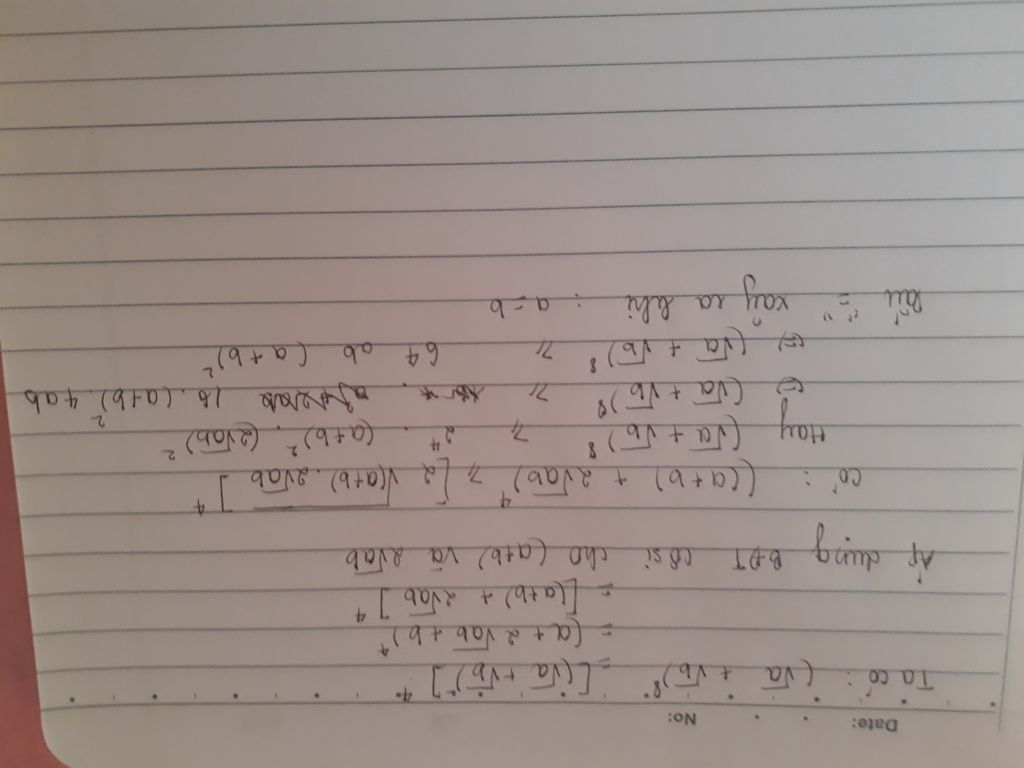 Date: No:
Ta có: (√a + √b)⁸ = [(√a + √b)²]⁴
= (a + 2√ab + b)⁴
= [(a+b) + 2√ab]⁴
Áp dụng BĐT Côsi cho (a+b) và 2√ab
có: ((a+b) + 2√ab)⁴ ≥ [2√(a+b).2√ab]⁴
Hay (√a + √b)⁸ ≥ 2⁴. (a+b)². (2√ab)²
⇔ (√a + √b)⁸ ≥ 16.(a+b)². 4ab
⇔ (√a + √b)⁸ ≥ 64 ab (a+b)²
Dấu "=" xảy ra khi : a=b